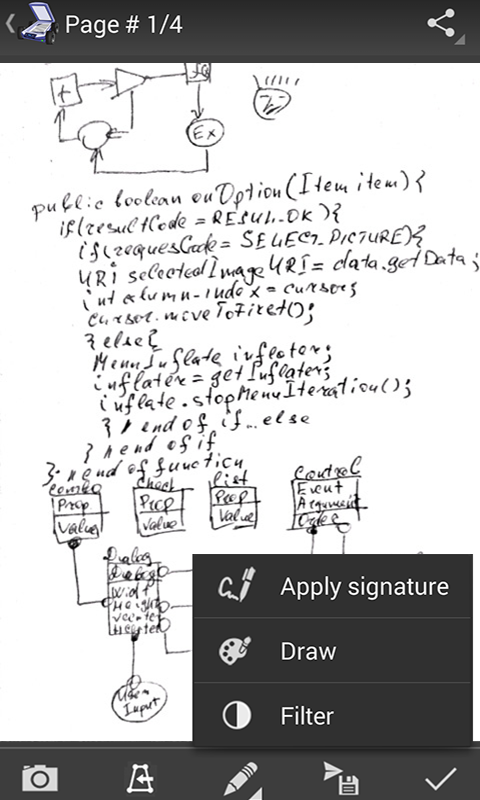 Page # 1/4
+
Ex
public boolean onOption(Item item){
if(resultCode = RESUL_OK){
if(requesCode = SELECT_PICTURE){
URi selectedImageURI = data.getData;
int column-index = cursor;
cursor.moveToFirst();
} else{
MenuInflate inflater;
inflater = getInflater;
inflate.stopMenuIteration();
} // end of if...else
} // end of if
}; // end of function
Combo Check List Control
Prop Prop Prop Event
Value Value Value Argument
Order
Dialog
Dialog
Widt
Height
Vcenter
Hcenter
User
Input
Apply signature
Draw
Filter